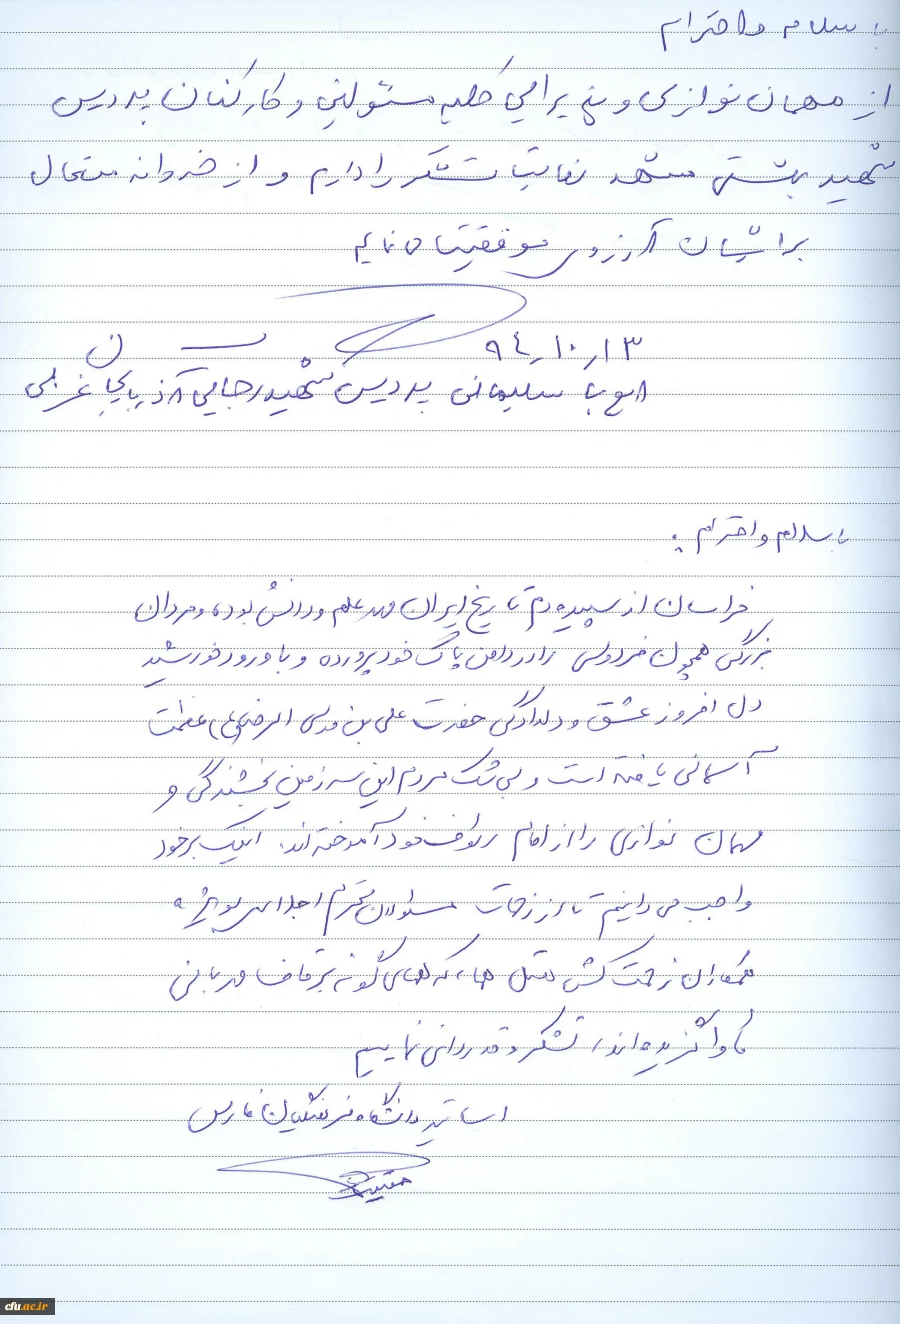 با سلام و احترام
از مهمان نوازی و پذیرایی کلیه مسئولین و کارکنان پردیس
شهید بهشتی مشهد نهایت تشکر را دارم و از خداوند متعال
برایشان آرزوی موفقیت می نمایم
۹۴/۱۰/۱۳
سلیمانی پردیس شهید رجایی آذربایجان غربی
با سلام و احترام:
خراسان از سپیده دم تاریخ ایران مهد علم و دانش بوده و مردان
بزرگی همچون فردوسی را در دامن پاک خود پرورده و با ورود خورشید
دل افروز عشق و دلدادگی حضرت علی بن موسی الرضا (ع) عظمت
آسمانی یافته است و بی شک مردم این سرزمین بخشندگی و
مهمان نوازی را از امام رئوف خود آموخته اند. اینک بر خود
واجب می دانیم تا از زحمات مسئولان محترم اجرایی بویژه
همکاران زحمت کش هتل ها، که همای گونه بر قاف مهربانی
مأوا گزیده اند، تشکر و قدردانی نماییم
اساتید دانشگاه فرهنگیان فارس
cfu.ac.ir